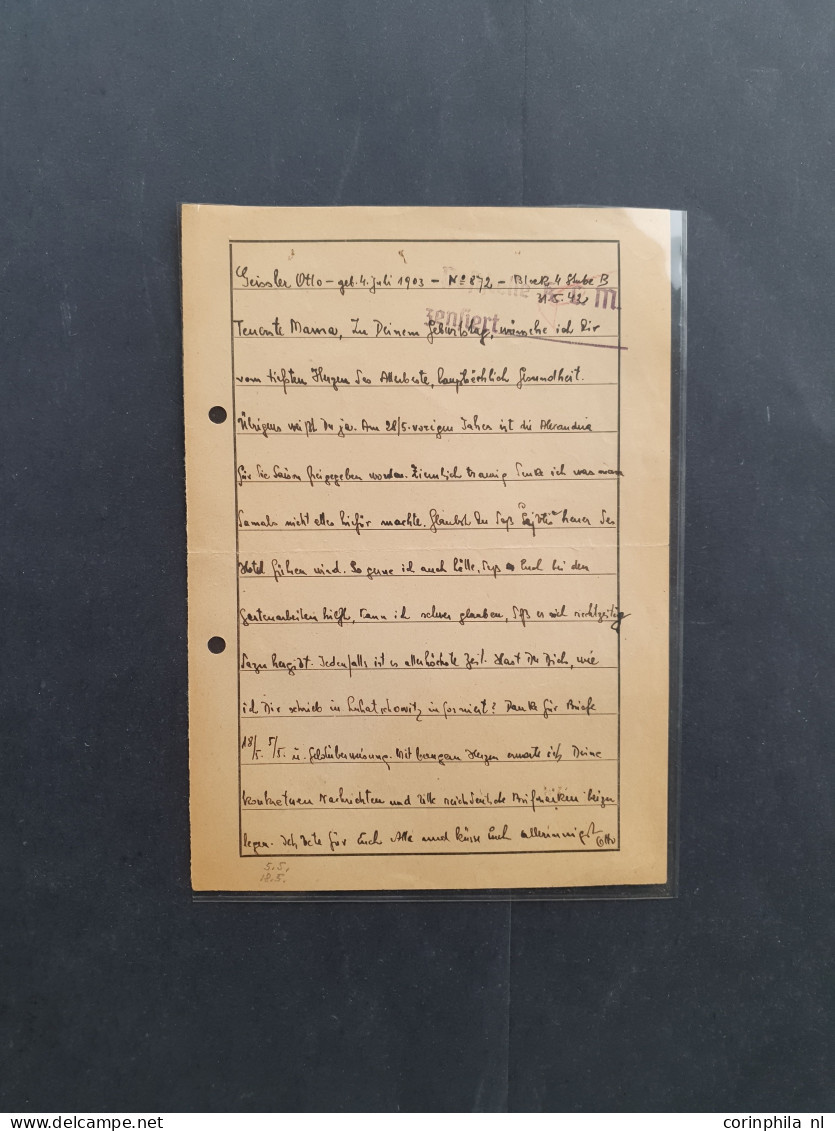 Geissler Otto – geb. 4. Juli 1903 – No 872 – Block 4 Stube B
31.5.42
zensiert
Teuerste Mama, Zu Deinem Geburtstag, wünsche ich Dir
vom tiefsten Herzen das Allerbeste, hauptsächlich Gesundheit.
Übrigens weißt Du ja. Am 28/5. vorigen Jahres ist die Alexandria
für die Saison freigegeben worden. Ziemlich traurig denke ich was man
damals nicht alles hiefür machte. Glaubst Du daß heuer das
Hotel gehen wird. So gerne ich auch hätte, daß Euch bei den
Gartenarbeiten hilft, kann ich schwer glauben, daß er sich rechtzeitig
dazu hergibt. Jedenfalls ist es allerhöchste Zeit. Hast Du Dich, wie
ich Dir schrieb in Luhatschowitz informiert? Danke für Briefe
18/5. 5/5. u. Geldüberweisung. Mit bangem Herzen erwarte ich Deine
konkreteren Nachrichten und bitte reichsdeutsche Briefmarken beizu
legen. Ich bete für Euch Alle und küsse Euch allerinnigst Otto
5.5.
18.5.
corinphila nl